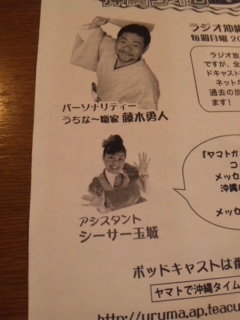 ラジオ沖縄
毎週月曜 20
ラジオ放
ですが、全
ドキャスト
ネット
過去の放
ます!
パーソナリティー
うちな〜噺家 藤木勇人
「ヤマトガ
コ
メッセ
沖縄
メッセ
アシスタント
シーサー玉城
ポッドキャストは
ヤマトで沖縄タイム
http://uruma.ap.teacu